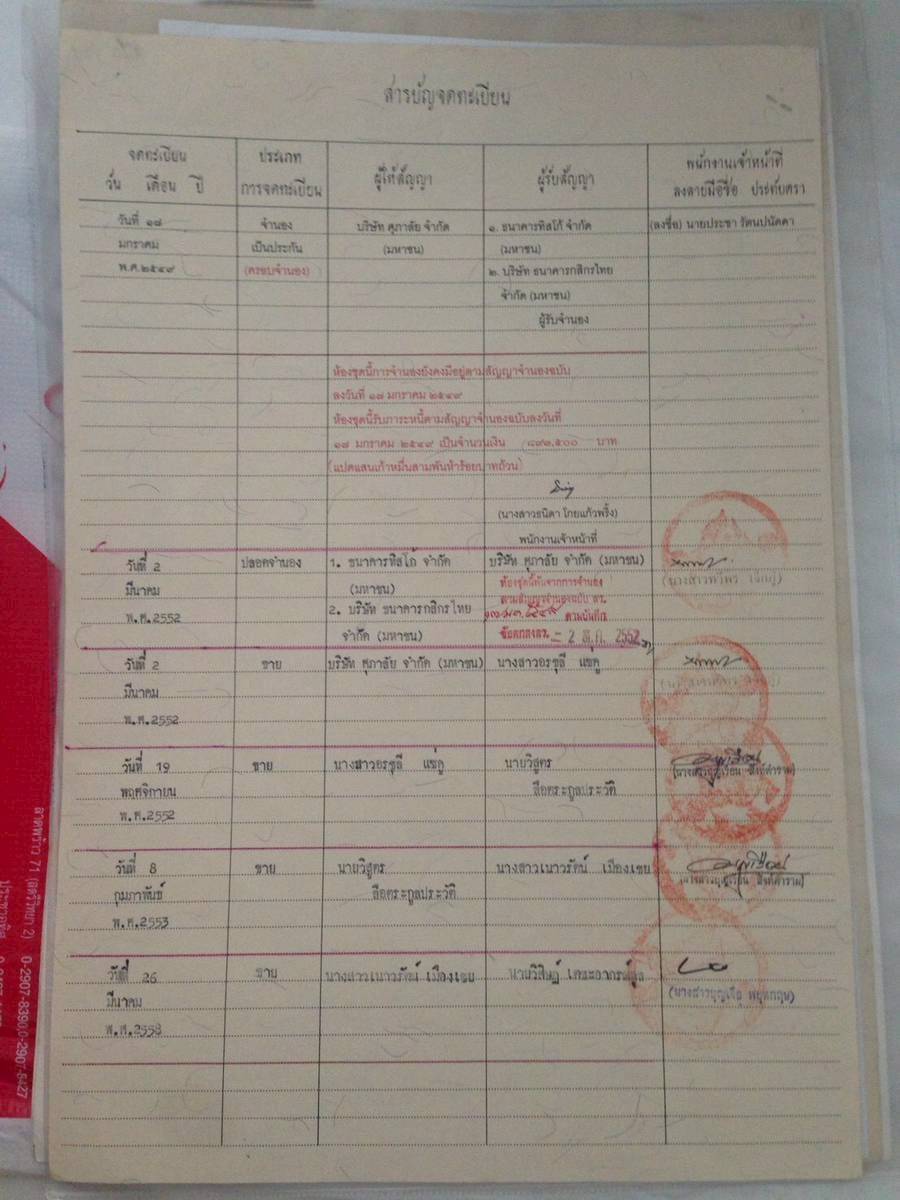 สารบัญจดทะเบียน
จดทะเบียน
วัน เดือน ปี
ประเภท
การจดทะเบียน
ผู้ให้สัญญา
ผู้รับสัญญา
พนักงานเจ้าหน้าที่
ลงลายมือชื่อ ประทับตรา
วันที่ ๑๘
มกราคม
พ.ศ.๒๕๔๙
จำนอง
เป็นประกัน
(ครอบจำนอง)
บริษัท ศุภาลัย จำกัด
(มหาชน)
๑. ธนาคารทิสโก้ จำกัด
(มหาชน)
๒. บริษัท ธนาคารกสิกรไทย
จำกัด (มหาชน)
ผู้รับจำนอง
(ลงชื่อ) นายประชา รัตนปนัดดา
ห้องชุดนี้การจำนองยังคงมีอยู่ตามสัญญาจำนองฉบับ
ลงวันที่ ๑๘ มกราคม ๒๕๔๙
ห้องชุดนี้รับภาระหนี้ตามสัญญาจำนองฉบับลงวันที่
๑๘ มกราคม ๒๕๔๙ เป็นจำนวนเงิน ๘๙๓,๕๐๐ บาท
(แปดแสนเก้าหมื่นสามพันห้าร้อยบาทถ้วน)
(นางสาวธนิดา โกยแก้วพริ้ง)
พนักงานเจ้าหน้าที่
วันที่ 2
มีนาคม
พ.ศ.2552
ปลอดจำนอง
1. ธนาคารทิสโก้ จำกัด
(มหาชน)
2. บริษัท ธนาคารกสิกรไทย
จำกัด (มหาชน)
บริษัท ศุภาลัย จำกัด (มหาชน)
ห้องชุดนี้พ้นจากการจำนอง
ตามสัญญาจำนองฉบับ ลว.
ตามบันทึก
ข้อตกลงลว. = 2 มี.ค. 2552
วันที่ 2
มีนาคม
พ.ศ.2552
ขาย
บริษัท ศุภาลัย จำกัด (มหาชน)
นางสาวอรชุลี แซ่คู
วันที่ 19
พฤศจิกายน
พ.ศ.2552
ขาย
นางสาวอรชุลี แซ่คู
นายวิสูตร
ลือตระกูลประวัติ
วันที่ 8
กุมภาพันธ์
พ.ศ.2553
ขาย
นายวิสูตร
ลือตระกูลประวัติ
นางสาวเนาวรัตน์ เมืองเชย
วันที่ 26
มีนาคม
พ.ศ.2558
ขาย
นางสาวเนาวรัตน์ เมืองเชย
นายวิสิษฎ์
ลาดพร้าว 71 (สตรีวิทยา 2) 0-2907-8390,0-2907-8427